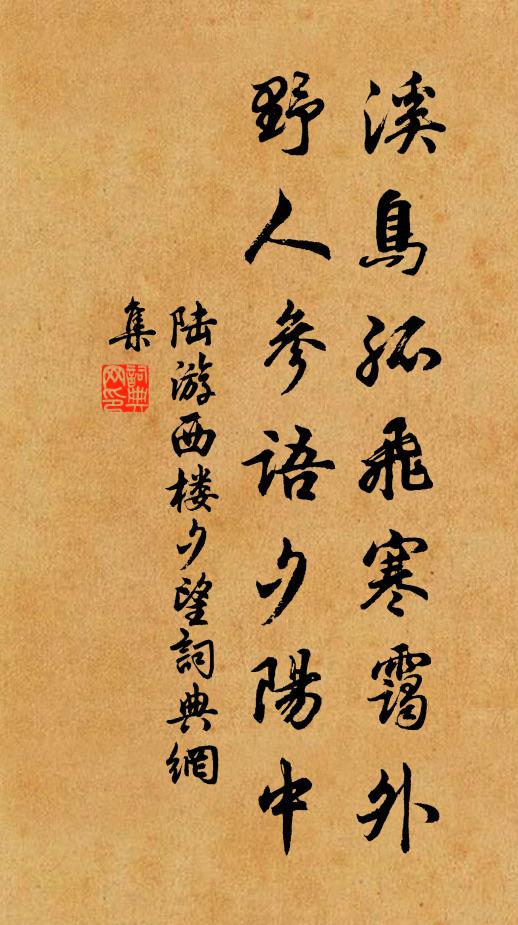 溪鳥孤飛寒靄外
野人參語夕陽中
陆游西楼夕望詞典網
集
詞典
网印